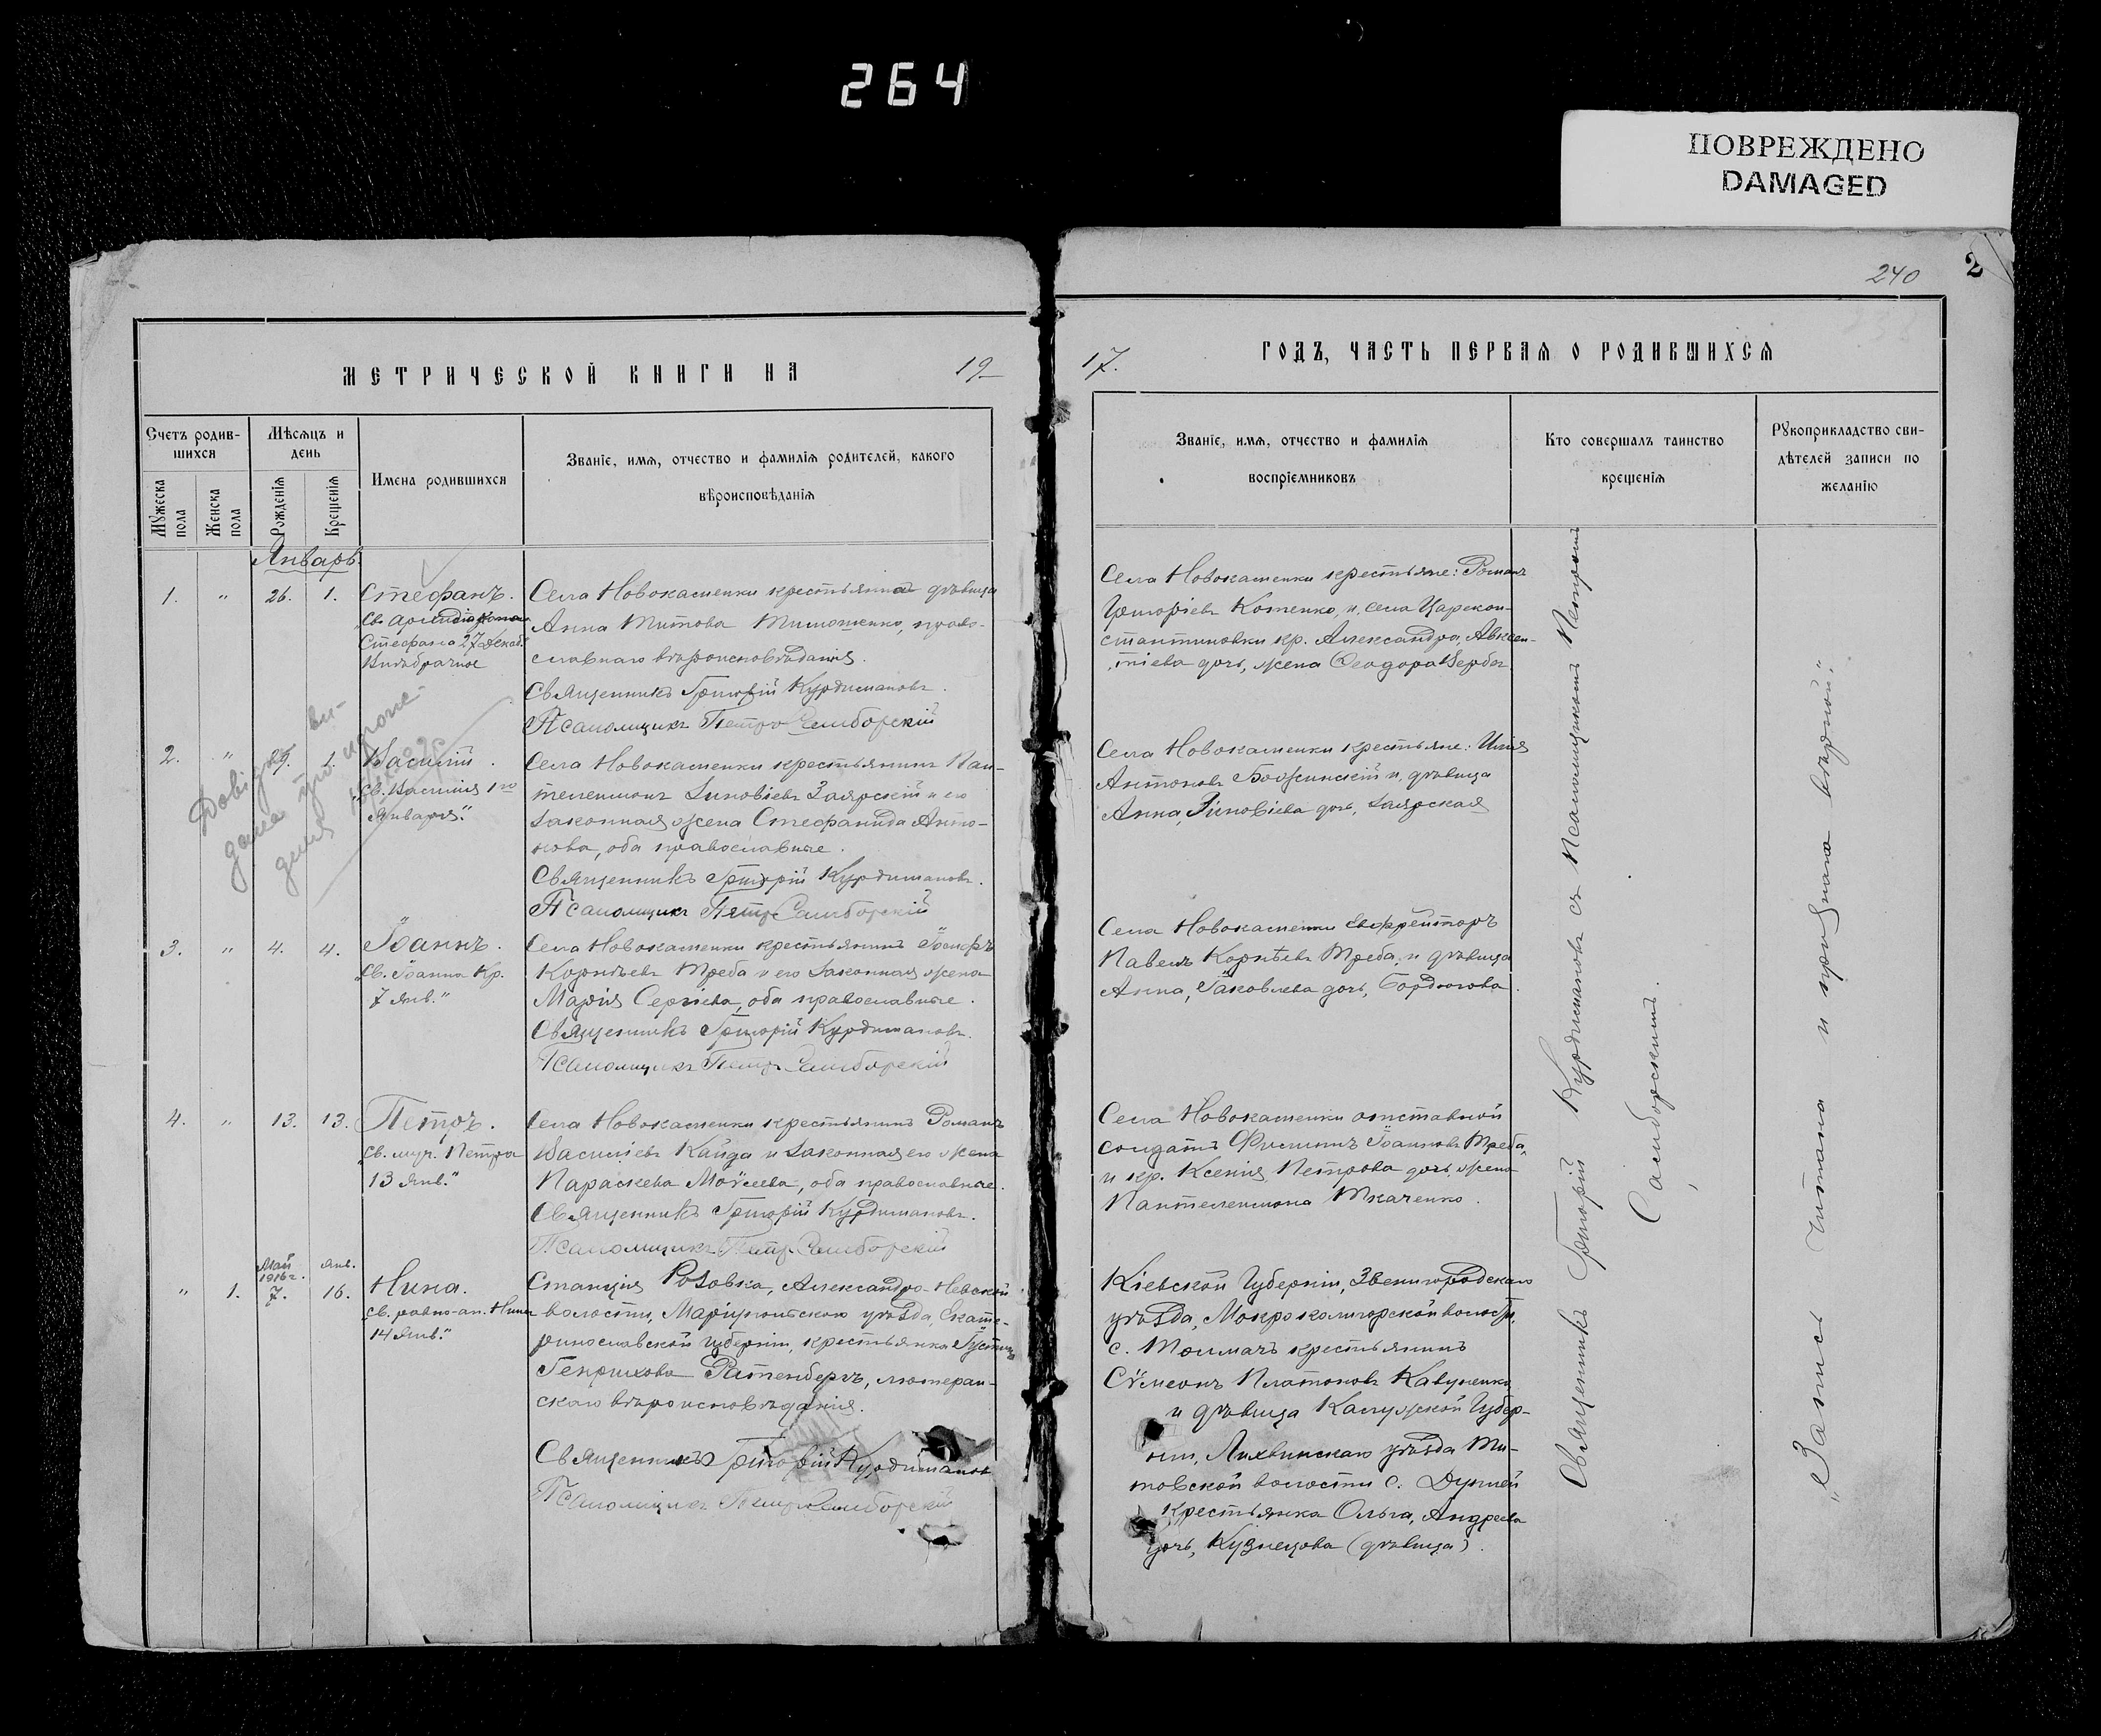 264
ПОВРЕЖДЕНО
DAMAGED
240
2
МЕТРИЧЕСКОЙ КНИГИ НА 19
17. ГОДЪ, ЧАСТЬ ПЕРВАЯ О РОДИВШИХСЯ
Счетъ родив-
шихся
Мужеска пола
Женска пола
Мѣсяцъ и
день
Рожденія
Крещенія
Имена родившихся
Званіе, имя, отчество и фамилія родителей, какого
вѣроисповѣданія
Званіе, имя, отчество и фамилія
воспріемниковъ
Кто совершалъ таинство
крещенія
Рукоприкладство сви-
дѣтелей записи по
желанію
Январь.
1. " 26. 1. Стефанъ.
Св.
Стефана 27 декаб.
Внѣбрачное
Села Новокаменки крестьянка дѣвица
Анна Титова Тимошенко, право-
славнаго вѣроисповѣданія.
Священникъ Григорій Курдимановъ.
Псаломщикъ Петръ Самборскій
Села Новокаменки крестьяне: Романъ
Григоріевъ Котенко, и, села Царекон-
стантиновки кр. Александра, Авксен-
тіева дочь, жена Ѳеодора Щерба
2. " 1. Василій.
"Св. Василія 1го
Января."
Села Новокаменки крестьянинъ Пан-
телеимонъ Зиновіевъ Заярскій и его
законная жена Стефанида Анто-
нова, оба православные.
Священникъ Григорій Курдимановъ.
Псаломщикъ Петръ Самборскій
Села Новокаменки крестьяне: Илія
Антоновъ Божинскій и, дѣвица
Анна, Зиновіева дочь, Заярская
Довідку ви-
дана про
3. " 4. 4. Іоаннъ.
"Св. Іоанна Кр.
7 Янв."
Села Новокаменки крестьянинъ Іосифъ
Корнѣевъ Треба и его законная жена
Марія Сергіева, оба православные.
Священникъ Григорій Курдимановъ.
Псаломщикъ Петръ Самборскій
Села Новокаменки Ефрейторъ
Павелъ Корнѣевъ Треба, и дѣвица
Анна, Іаковлева дочь, Бордюгова.
4. " 13. 13. Петръ.
"Св. муч. Петра
13 Янв."
Села Новокаменки крестьянинъ Романъ
Василіевъ Кайда и законная его жена
Параскева Моѵсеева, оба православные.
Священникъ Григорій Курдимановъ.
Псаломщикъ Петръ Самборскій
Села Новокаменки отставной
солдатъ Филиппъ Іоанновъ Треба,
и кр. Ксенія Петрова дочь, жена
Пантелеимона Ткаченко.
Май
1916 г. Янв.
" 1. 7. 16. Нина.
"Св. равно-ап. Нины
14 Янв."
Станція Розовка, Александро-Невской
волости, Маріупольскаго уѣзда, Екате-
ринославской Губерніи, крестьянка
Генрихова Ратенбергъ, лютеран-
скаго вѣроисповѣданія.
Священникъ Григорій Курдимановъ
Псаломщикъ Петръ Самборскій
Кіевской Губерніи, Звенигородскаго
уѣзда, Мокрокалигорской волости,
с. Толмачъ крестьянинъ
Сѵмеонъ Платоновъ Кавуненко
и дѣвица Калужской Губер-
ніи, Лихвинскаго уѣзда Ми-
товской волости с.
крестьянка Ольга, Андреева
дочь, Кузнецова (дѣвица).
Священникъ Григорій Курдимановъ съ Псаломщикомъ Петромъ
Самборскимъ.
"Запись читана и признана вѣрной."